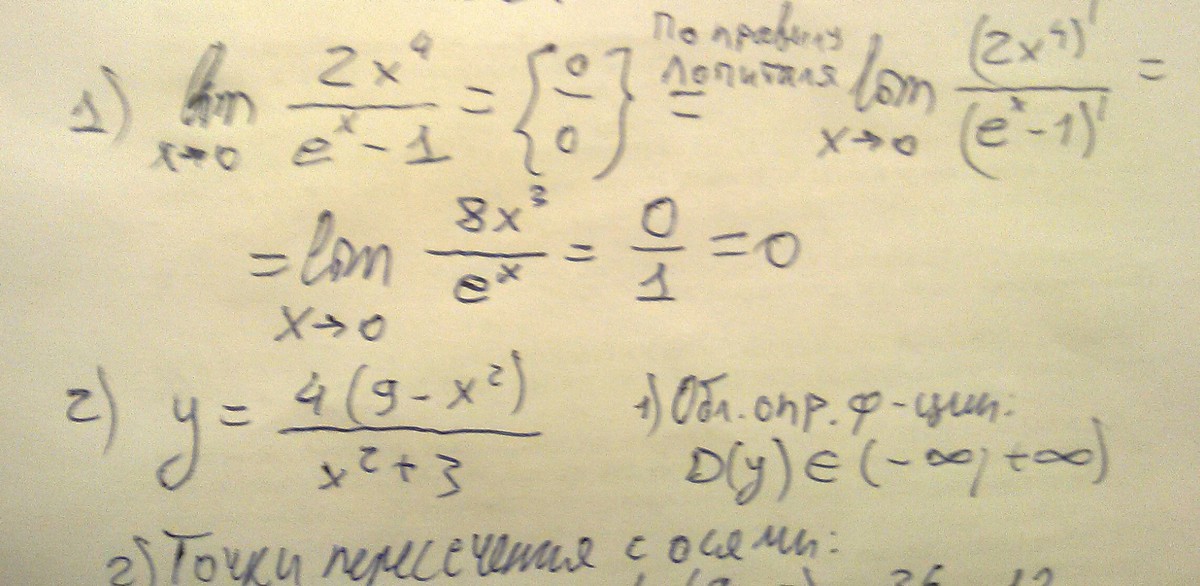 1) lim x→0 2x⁴/(eˣ - 1) = {0/0} = По правилу Лопиталя lim x→0 (2x⁴)'/(eˣ - 1)' =
= lim x→0 8x³/eˣ = 0/1 = 0
2) y = 4(9 - x²)/(x² + 3) 1) Обл. опр. ф-ции: D(y) ∈ (-∞; +∞)
2) Точки пересечения с осями: